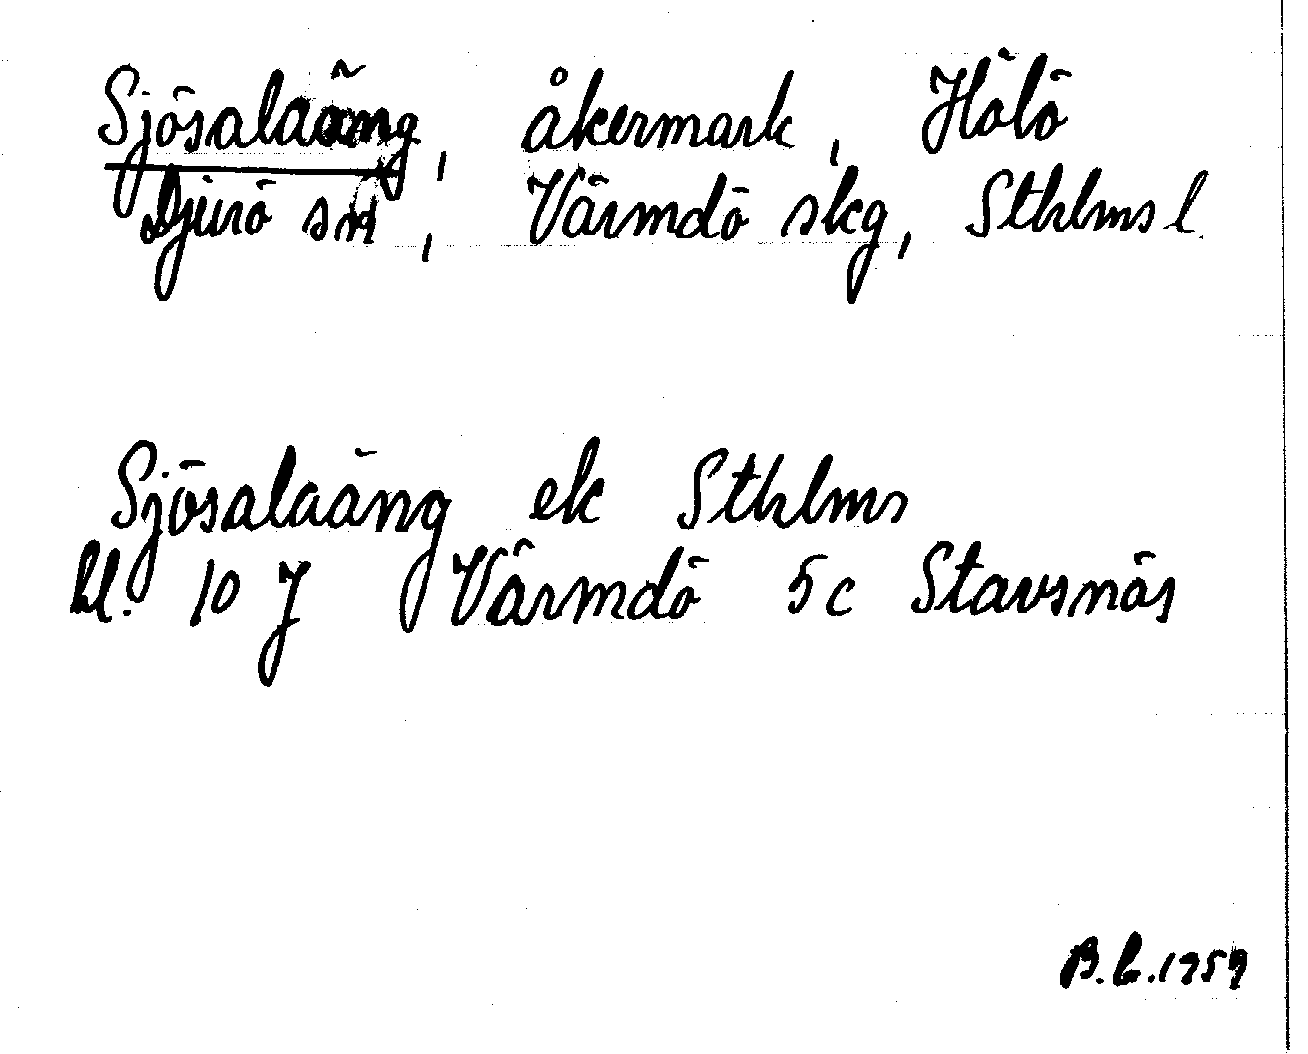 Sjösalaäng, åkermark, Hölö
Djurö sn, Värmdö skg, Sthlms l.
Sjösalaäng ek Sthlms
bl. 10 J Värmdö 5c Stavsnäs
B.C. 1959